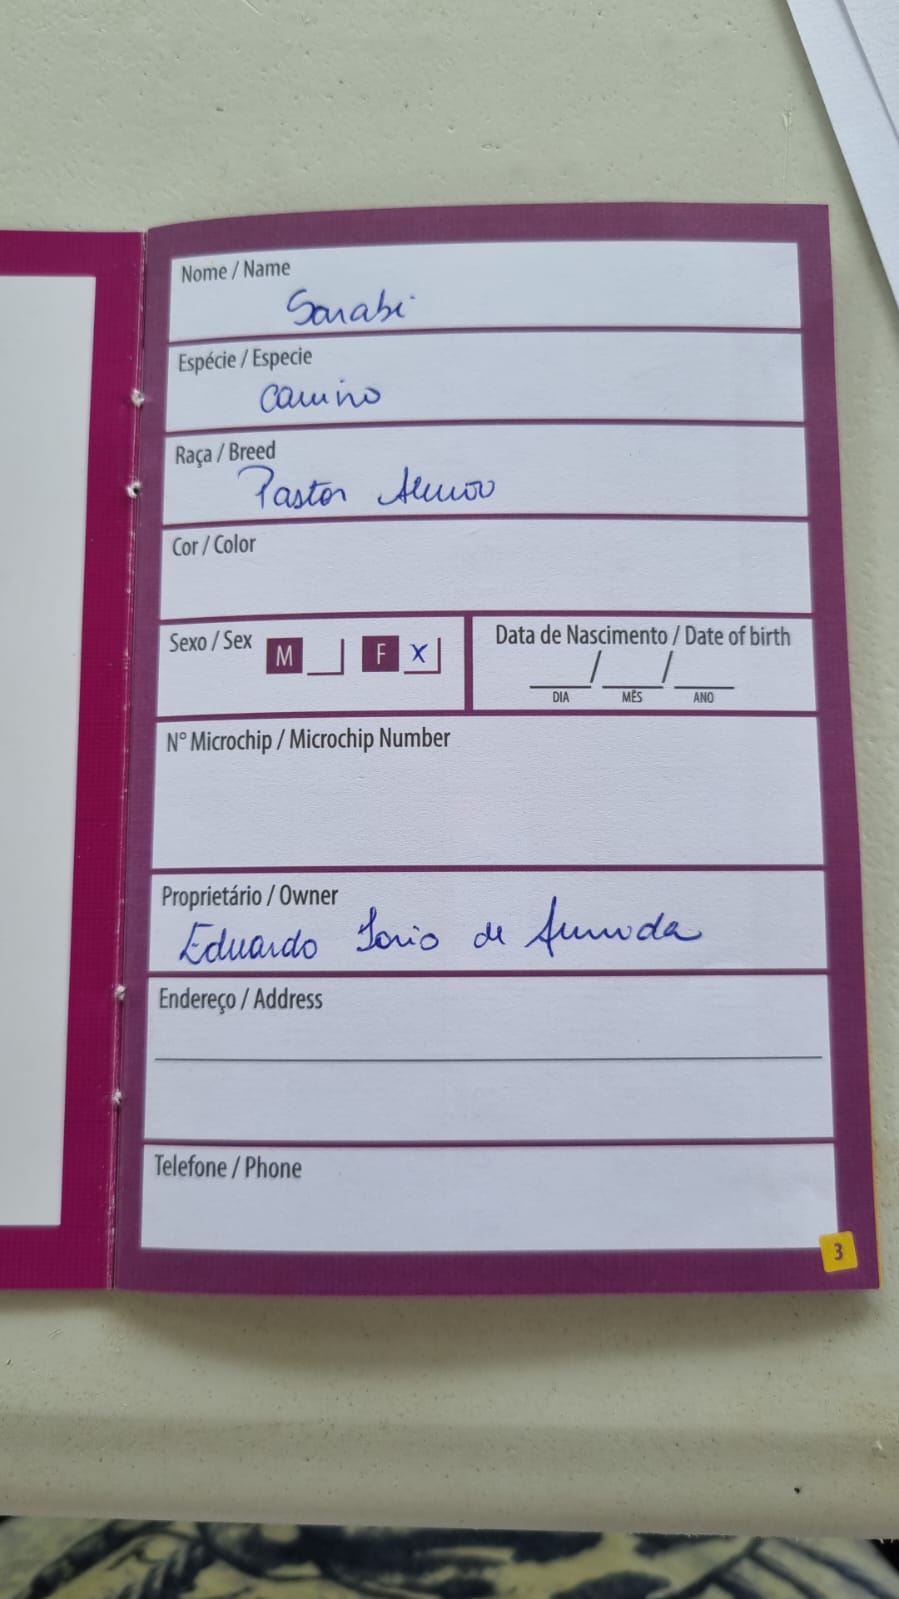 Nome / Name
Sarabi
Espécie / Especie
Canino
Raça / Breed
Pastor Alemão
Cor / Color
Sexo / Sex M F X
Data de Nascimento / Date of birth
/ /
DIA MÊS ANO
N° Microchip / Microchip Number
Proprietário / Owner
Eduardo de Almeida
Endereço / Address
Telefone / Phone
3